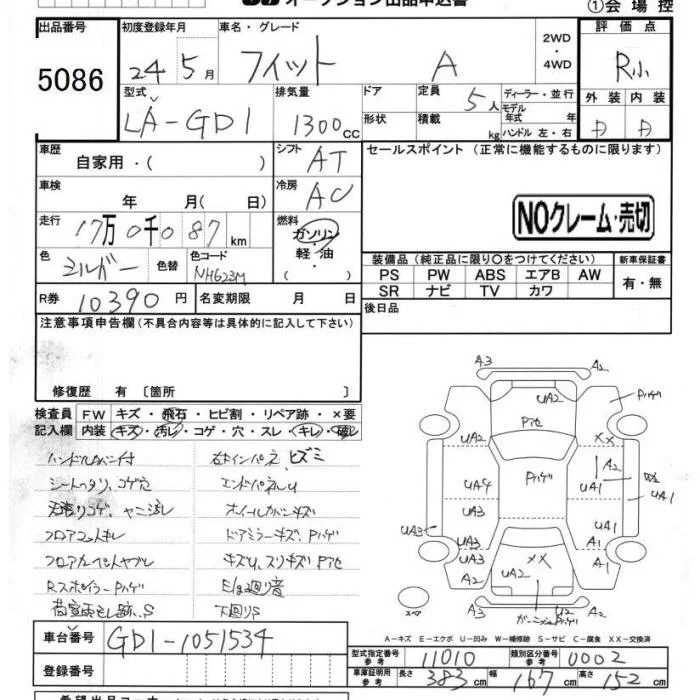 オークション出品申込書
①会場控
出品番号 初度登録年月 車名・グレード 2WD・4WD 評価点
5086 24 5月 フィット A R小
型式 排気量 ドア 定員 5人 ディーラー・並行 外装 内装
LA-GD1 1300cc 形状 積載 kg モデル年式 年式 ハンドル 左・右 D D
車歴 自家用・( ) シフト AT セールスポイント (正常に機能するものに限ります)
車検 年 月( 日) 冷房 AC
NOクレーム・売切
走行 17万0千087km 燃料 ガソリン・軽油・( )
色 シルバー 色替 色コード NH623M
装備品 (純正品に限り○をつけてください) 新車保証書
PS PW ABS エアB AW 有・無
SR ナビ TV カワ
R券 10390円 名変期限 月 日 後日品
注意事項申告欄(不具合内容等は具体的に記入して下さい)
修復歴 有 〔箇所 〕
検査員 FW キズ・飛石・ヒビ割・リペア跡・×要
記入欄 内装 キズ・汚レ・コゲ・穴・スレ・キレ・破レ
ハンドルカバー付 右インパネヒズミ
シートヘタリ、コゲ穴
コゲ、ヤニ汚レ
ドアミラーキズ、Pハゲ
キズU、スリキズ Pアセ
RスポイラーPハゲ E/g廻り音
S 下廻りS
A3 A2
UA2 Pハゲ
Pアセ
UA2 XX
UA4 Pハゲ A2 UA1
UA3 UA1
UA3 UA3 A1
UA2 A2 XX A1
UA2
スペア A3 U2 A2
ガーニッシュPハゲ
A-キズ E-エクボ U-凹み W-補修跡 S-サビ C-腐食 XX-交換済
車台番号 GD1-1051534
型式指定番号 参考 11010 類別区分番号 参考 0002
登録番号 車庫証明用 参考 長さ 383cm 幅 167cm 高さ 152cm